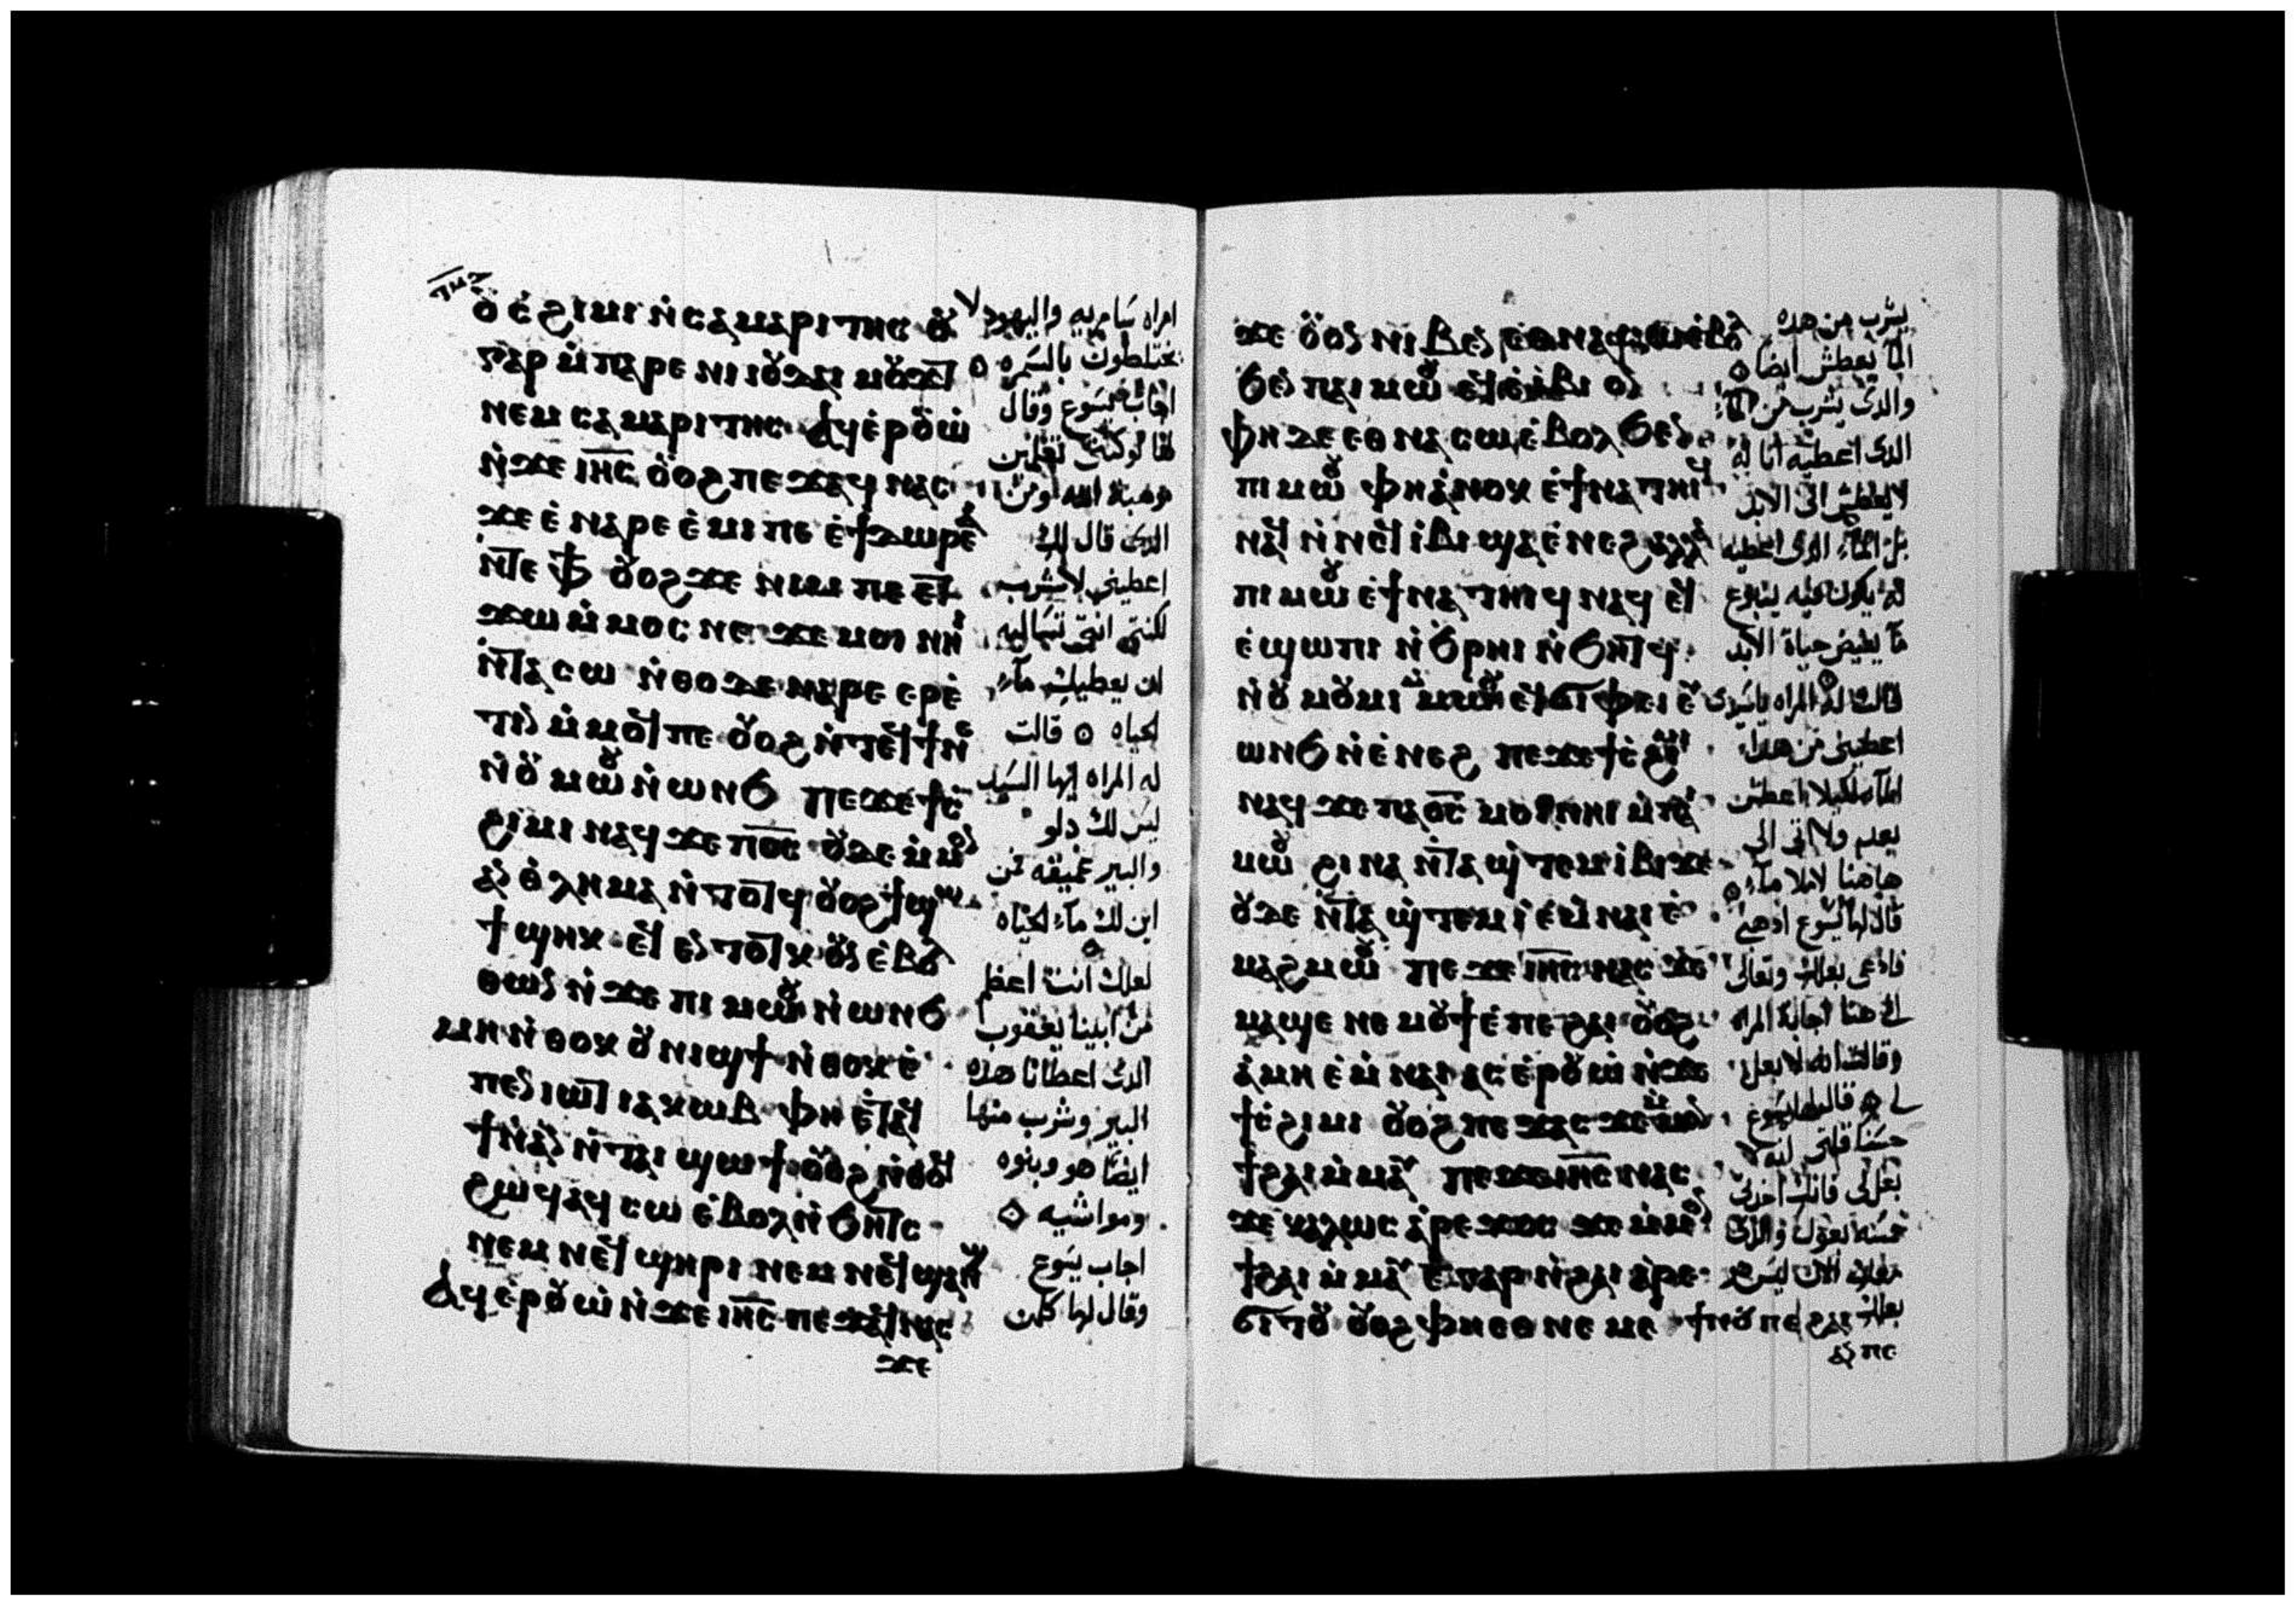 ⲟⲩⲥϩⲓⲙⲓ ⲛ̀ⲥⲁⲙⲁⲣⲓⲧⲏⲥ ⲟⲩ
ⲅⲁⲣ ⲙ̀ⲡⲁⲣⲉ ⲛⲓⲓⲟⲩⲇⲁⲓ ⲙⲟⲩϫⲧ
ⲛⲉⲙ ⲥⲁⲙⲁⲣⲓⲧⲏⲥ ⲁϥⲉ̀ⲣⲟⲩⲱ̀
ⲛ̀ϫⲉ ⲓⲏ̅ⲥ̅ ⲟⲩⲟϩ ⲡⲉϫⲁϥ ⲛⲁⲥ
ϫⲉ ⲉ̀ⲛⲁⲣⲉ ⲉ̀ⲙⲓ ⲡⲉ ⲉ̀ϯⲇⲱⲣⲉⲁ̀
ⲛ̀ⲧⲉ ⲫϯ ⲟⲩⲟϩ ϫⲉ ⲛⲓⲙ ⲡⲉ ⲉⲧ
ϫⲱ ⲙ̀ⲙⲟⲥ ⲛⲉ ϫⲉ ⲙⲟⲓ ⲛⲏⲓ
ⲛ̀ⲧⲁⲥⲱ ⲛ̀ⲑⲟ ⲇⲉ ⲛⲁⲣⲉ ⲉⲣⲉ̀
ⲧⲓⲛ ⲙ̀ⲙⲟϥ ⲡⲉ ⲟⲩⲟϩ ⲛ̀ⲧⲉϥϯ ⲛⲉ
ⲛ̀ⲟⲩⲙⲱⲟⲩ ⲛ̀ⲱⲛϧ ⲡⲉϫⲉ ϯⲥ̀
ϩⲓⲙⲓ ⲛⲁϥ ϫⲉ ⲡⲟ̅ⲥ̅ ⲟⲩⲇⲉ ⲙ̀ⲙⲟⲛ
ⲁⲛⲑⲗⲏⲙⲁ ⲛ̀ⲧⲟⲧϥ ⲟⲩⲟϩ ϯϣⲱ
ϯ ϣⲏⲕ ⲉⲧ ⲉⲛⲧⲟⲧⲕ ⲟⲩⲛ ⲉ̀ⲃⲟⲗ
ⲑⲱⲛ ⲛ̀ϫⲉ ⲡⲓⲙⲱⲟⲩ ⲛ̀ⲱⲛϧ
ⲙⲏ ⲛ̀ⲑⲟⲕ ⲟⲩⲛⲓϣϯ ⲛ̀ⲑⲟⲕ ⲉ̀
ⲡⲉⲛⲓⲱⲧ ⲓⲁⲕⲱⲃ ⲫⲏ ⲉ̀ⲧⲁϥ
ϯ ⲛⲁⲛ ⲛ̀ⲧⲁⲓϣⲱϯ ⲟⲩⲟϩ ⲛ̀ⲑⲟϥ
ϩⲱϥ ⲁϥⲥⲱ ⲉ̀ⲃⲟⲗ ⲛ̀ϧⲏⲧⲥ
ⲛⲉⲙ ⲛⲉϥϣⲏⲣⲓ ⲛⲉⲙ ⲛⲉϥϣⲁⲛϣ
ⲁϥⲉ̀ⲣⲟⲩⲱ̀ ⲛ̀ϫⲉ ⲓⲏ̅ⲥ̅ ⲡⲉϫⲁϥ ⲛⲁⲥ
ϫⲉ
امراه سامريه واليهود لا
يختلطون بالسمره
اجاب يسوع وقال
لها لو كنتى تعلمين
موهبة الله ومن
الدى قال لك
اعطينى لاشرب
لكنتى انتى تساليه
ان يعطيك مآء
الحياه قالت
له المراه ايها السيد
ليس لك دلو
والبير عميقه فمن
اين لك مآء الحياه
لعلك انت اعظم
من ابينا يعقوب
الدى اعطانا هده
البير وشرب منها
ايضا هو وبنوه
ومواشيه
اجاب يسوع
وقال لها كلمن
ϫⲉ ⲟⲩⲟⲛ ⲛⲓⲃⲉⲛ ⲉⲑⲛⲁⲥⲱ ⲉ̀ⲃⲟⲗ
ϧⲉⲛ ⲡⲁⲓⲙⲱⲟⲩ ⲉϥⲉ̀ⲓ̀ⲃⲓ ⲟⲛ
ⲫⲏ ⲇⲉ ⲉⲑⲛⲁⲥⲱ ⲉ̀ⲃⲟⲗ ϧⲉⲛ
ⲡⲓⲙⲱⲟⲩ ⲫⲏ ⲁ̀ⲛⲟⲕ ⲉ̀ϯⲛⲁⲧⲏⲓϥ
ⲛⲁϥ ⲛ̀ⲛⲉϥⲓ̀ⲃⲓ ϣⲁ ⲉ̀ⲛⲉϩ ⲁⲗⲗⲁ
ⲡⲓⲙⲱⲟⲩ ⲉ̀ϯⲛⲁⲧⲏⲓϥ ⲛⲁϥ ⲉϥ
ⲉ̀ϣⲱⲡⲓ ⲛ̀ϧⲣⲏⲓ ⲛ̀ϧⲏⲧϥ
ⲛ̀ⲟⲩⲙⲟⲩⲙⲓ ⲙ̀ⲙⲱⲟⲩ ⲉϥϭⲓⲫⲉⲓ ⲉⲩ
ⲱⲛϧ ⲛ̀ⲉ̀ⲛⲉϩ ⲡⲉϫⲉ ϯⲥ̀ϩⲓⲙⲓ
ⲛⲁϥ ϫⲉ ⲡⲁⲟ̅ⲥ̅ ⲙⲟⲓ ⲛⲏⲓ ⲙ̀ⲡⲁⲓ
ⲙⲱⲟⲩ ϩⲓⲛⲁ ⲛ̀ⲧⲁϣ̀ⲧⲉⲙⲓ̀ⲃⲓ ϫⲉ
ⲟⲩⲇⲉ ⲛ̀ⲧⲁϣ̀ⲧⲉⲙⲓ̀ ⲉ̀ⲙⲛⲁⲓ ⲉ̀
ⲙⲁϩⲙⲱⲟⲩ ⲡⲉϫⲉ ⲓⲏ̅ⲥ̅ ⲛⲁⲥ ϫⲉ
ⲙⲁϣⲉ ⲛⲉ ⲙⲟⲩϯ ⲉ̀ⲡⲉϩⲁⲓ ⲟⲩⲟϩ
ⲁ̀ⲙⲏ ⲉ̀ⲙⲛⲁⲓ ⲁⲥⲉ̀ⲣⲟⲩⲱ̀ ⲛ̀ϫⲉ
ϯⲥ̀ϩⲓⲙⲓ ⲟⲩⲟϩ ⲡⲉϫⲁⲥ ϫⲉ ⲙ̀ⲙⲟⲛ
ϯϩⲁⲓ ⲙ̀ⲙⲁⲩ ⲡⲉϫⲉ ⲓⲏ̅ⲥ̅ ⲛⲁⲥ
ϫⲉ ⲕⲁⲗⲱⲥ ⲁ̀ⲣⲉϫⲟⲥ ϫⲉ ⲙ̀ⲙⲟⲛ
ϯϩⲁⲓ ⲙ̀ⲙⲁⲩ ⲉ̅ ⲅⲁⲣ ⲛ̀ϩⲁⲓ ⲁⲣⲉ
ϭⲓⲧⲟⲩ ⲟⲩⲟϩ ⲫⲏ ⲉⲑⲛⲉⲙⲉ ϯⲛⲟⲩ ⲡⲉϩⲁⲓ
ⲁⲛ ⲡⲉ
يشرب من هده
المآ يعطش ايضا
والدى يشرب من المآء
الدى اعطيه انا له
لا يعطش الى الابد
بل المآء الدى اعطيه
له يكون فيه ينبوع
مآ يفيض حياة الابد
قالت له المراه ياسيدى
اعطينى من هدا
المآء لكيلا اعطش
بعد ولا اتى الى
هاهنا لاملا مآء
قال لها يسوع ادهبى
فادعى بعلك وتعالى
الى هنا اجابة المراه
وقالت انه لا بعل
لى قال لها يسوع
حسنا قلتى انه لا
بعل لى فانك اخدتى
خمسه بعول والدى
معك الان ليس هو
بعلك